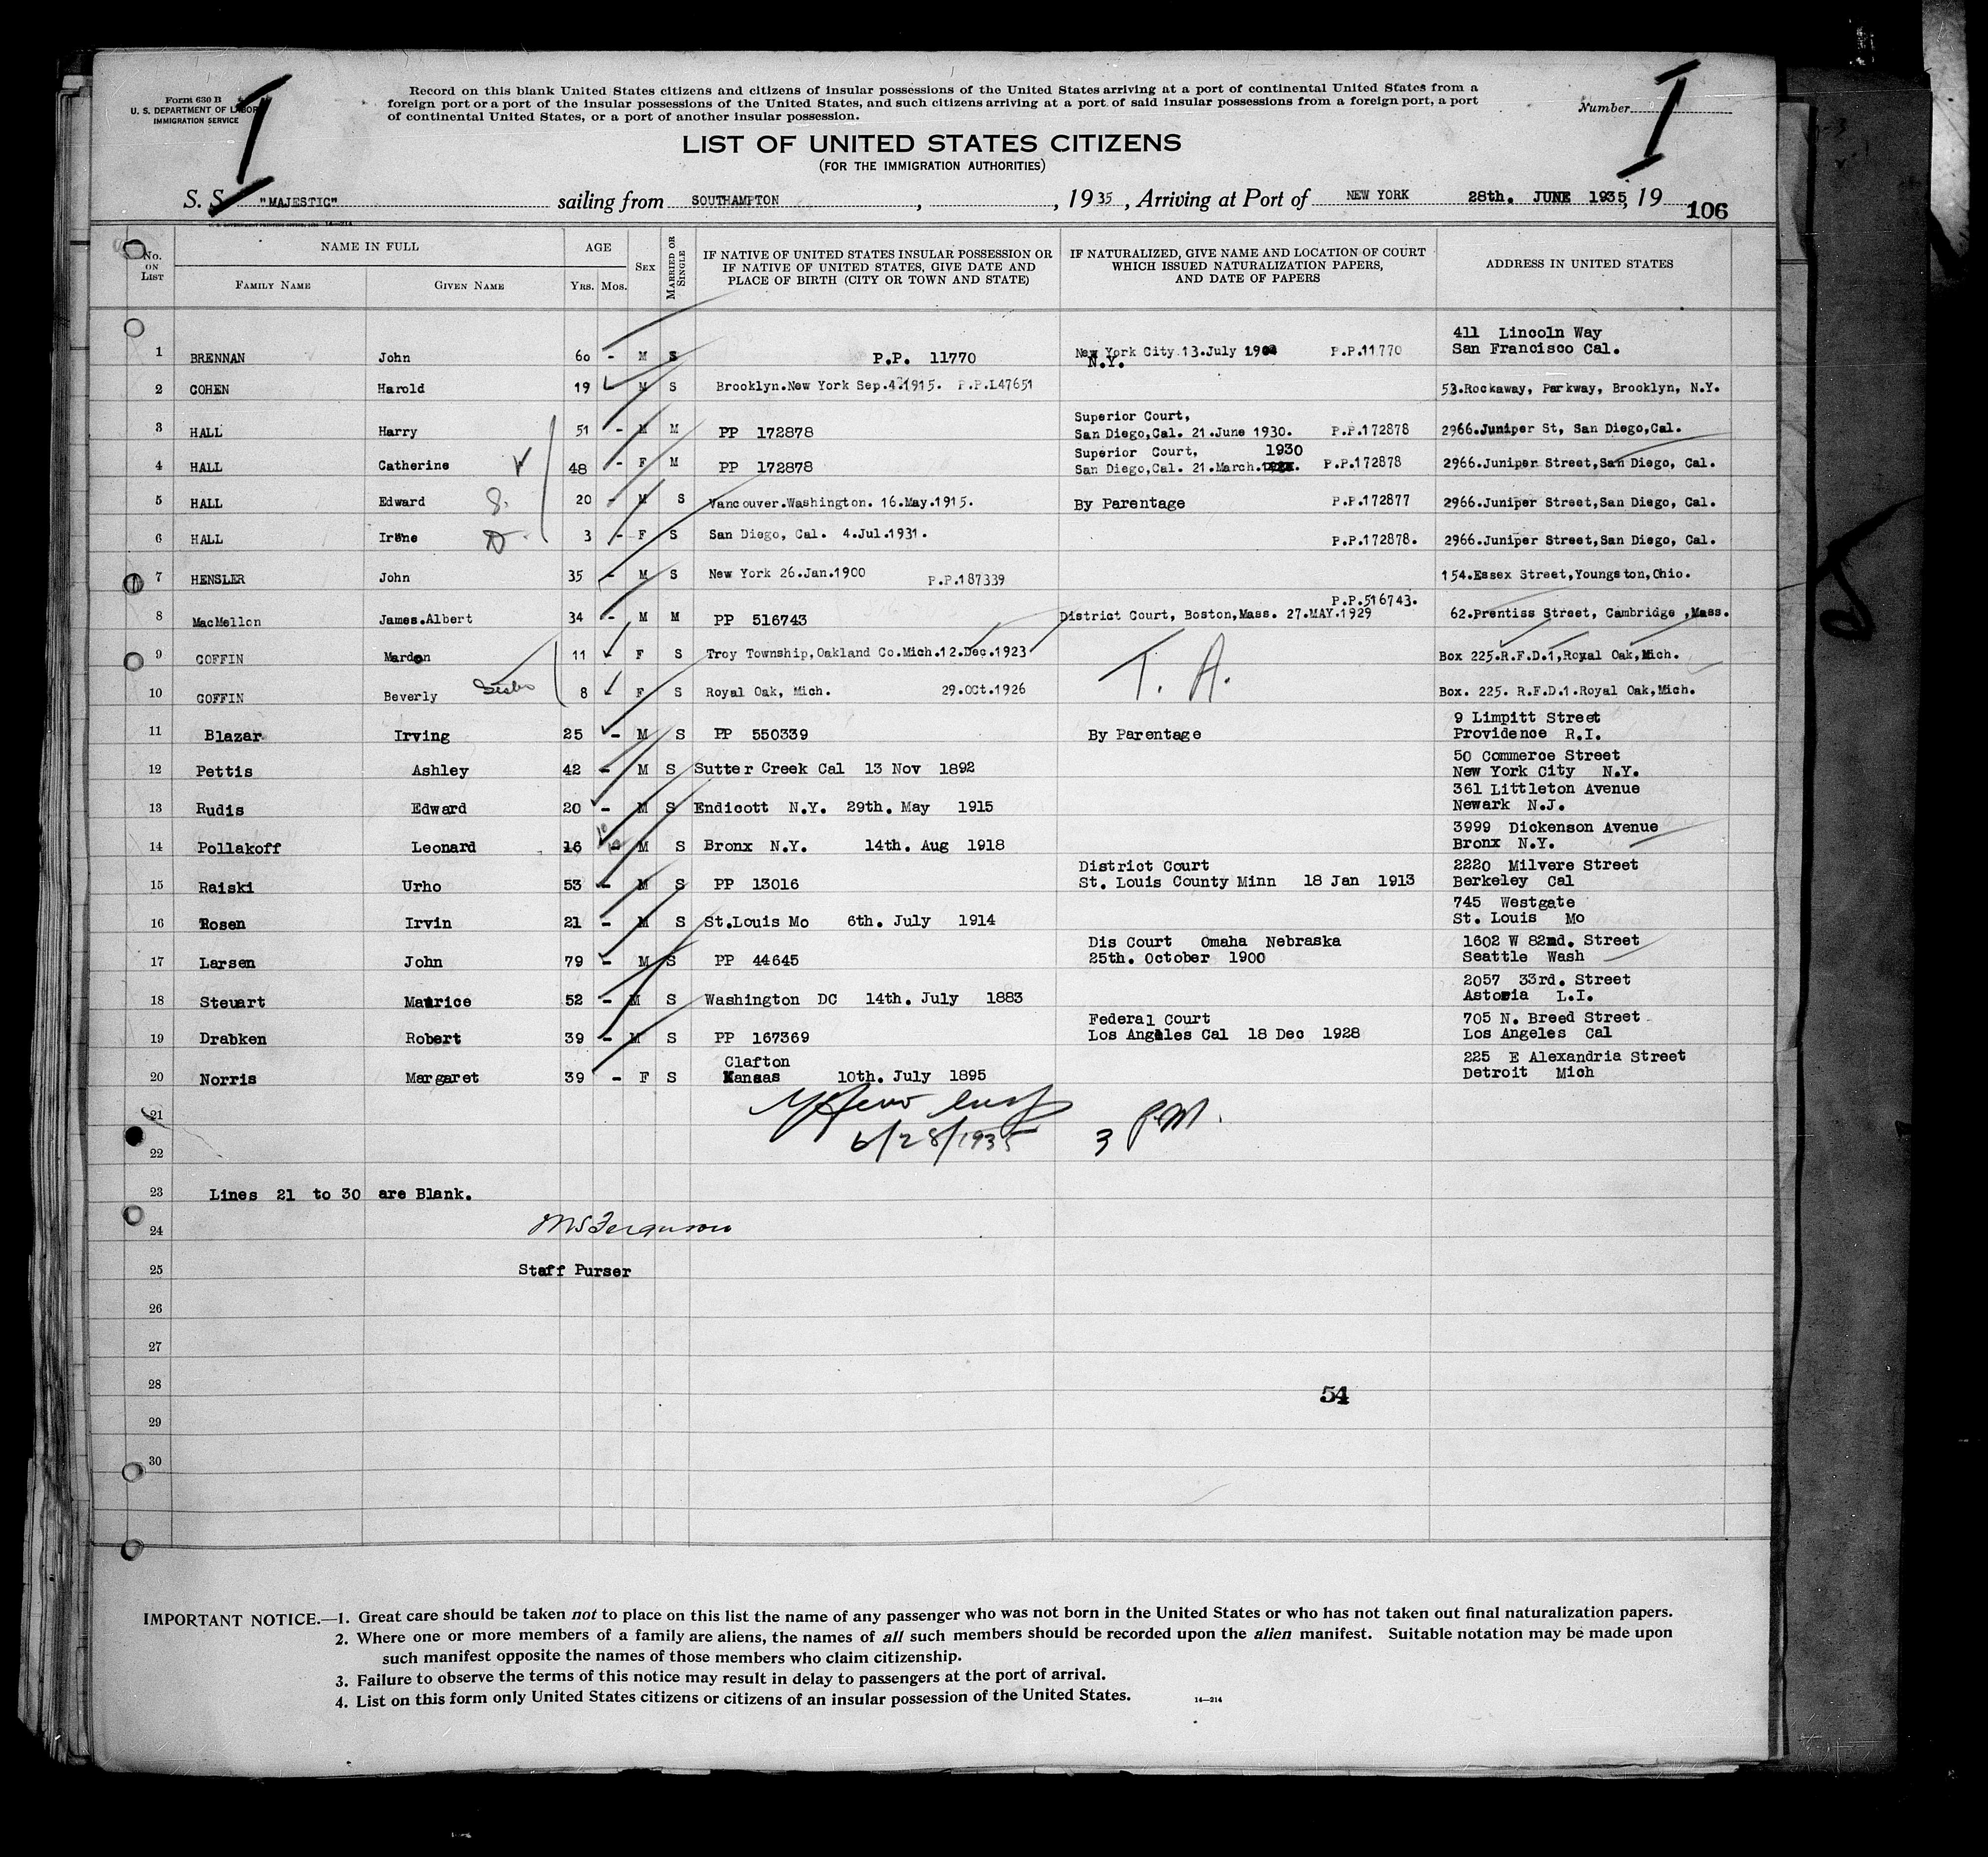 Form 630 B
U. S. DEPARTMENT OF LABOR
IMMIGRATION SERVICE
Record on this blank United States citizens and citizens of insular possessions of the United States arriving at a port of continental United States from a
foreign port or a port of the insular possessions of the United States, and such citizens arriving at a port of said insular possessions from a foreign port, a port
of continental United States, or a port of another insular possession.
Number
I
I
LIST OF UNITED STATES CITIZENS
(FOR THE IMMIGRATION AUTHORITIES)
S. S. "MAJESTIC" sailing from SOUTHAMPTON , , 1935 , Arriving at Port of NEW YORK 28th. JUNE 1935, 19
106
No. ON LIST
NAME IN FULL
FAMILY NAME GIVEN NAME
AGE
YRS. MOS.
SEX
MARRIED OR SINGLE
IF NATIVE OF UNITED STATES INSULAR POSSESSION OR
IF NATIVE OF UNITED STATES, GIVE DATE AND
PLACE OF BIRTH (CITY OR TOWN AND STATE)
IF NATURALIZED, GIVE NAME AND LOCATION OF COURT
WHICH ISSUED NATURALIZATION PAPERS,
AND DATE OF PAPERS
ADDRESS IN UNITED STATES
411 Lincoln Way
1 BRENNAN John 60 - M S P.P. 11770 New York City 13.July P.P.11770 San Francisco Cal.
N.Y.
2 COHEN Harold 19 M S Brooklyn.New York Sep.4.1915. P.P.L47651 53.Rockaway, Parkway, Brooklyn, N.Y.
Superior Court,
3 HALL Harry 51 - M M PP 172878 San Diego,Cal. 21.June 1930. P.P.172878 2966.Juniper St, San Diego,Cal.
Superior Court, 1930
4 HALL Catherine 48 - F M PP 172878 San Diego,Cal. 21.March. P.P.172878 2966.Juniper Street,San Diego, Cal.
5 HALL Edward S. 20 - M S Vancouver.Washington. 16.May.1915. By Parentage P.P.172877 2966.Juniper Street,San Diego, Cal.
6 HALL Irene D. 3 - F S San Diego, Cal. 4.Jul.1931. P.P.172878. 2966.Juniper Street,San Diego, Cal.
7 HENSLER John 35 - M S New York 26.Jan.1900 P.P.187339 154.Essex Street,Youngston,Ohio.
P.P.516743.
8 MacMellon James.Albert 34 - M M PP 516743 District Court, Boston,Mass. 27.MAY.1929 62.Prentiss Street, Cambridge ,Mass.
9 COFFIN Mardon 11 F S Troy Township,Oakland Co.Mich.12.Dec.1923 T. A. Box 225.R.F.D.1,Royal Oak,Mich.
10 COFFIN Beverly Sister 8 F S Royal Oak, Mich. 29.OCt.1926 Box. 225. R.F.D.1.Royal Oak,Mich.
9 Limpitt Street
11 Blazar Irving 25 - M S PP 550339 By Parentage Providence R.I.
50 Commerce Street
12 Pettis Ashley 42 - M S Sutter Creek Cal 13 Nov 1892 New York City N.Y.
361 Littleton Avenue
13 Rudis Edward 20 - M S Endicott N.Y. 29th. May 1915 Newark N.J.
3999 Dickenson Avenue
14 Pollakoff Leonard 16 10 M S Bronx N.Y. 14th. Aug 1918 Bronx N.Y.
District Court 2220 Milvere Street
15 Raiski Urho 53 - M S PP 13016 St. Louis County Minn 18 Jan 1913 Berkeley Cal
745 Westgate
16 Rosen Irvin 21 - M S St.Louis Mo 6th. July 1914 St. Louis Mo
Dis Court Omaha Nebraska 1602 W 82nd. Street
17 Larsen John 79 - M S PP 44645 25th. October 1900 Seattle Wash
2057 33rd. Street
18 Steuart Maurice 52 - M S Washington DC 14th. July 1883 Astoria L.I.
Federal Court 705 N. Breed Street
19 Drabken Robert 39 - M S PP 167369 Los Angeles Cal 18 Dec 1928 Los Angeles Cal
Clafton 225 E Alexandria Street
20 Norris Margaret 39 - F S Kansas 10th. July 1895 Detroit Mich
21
6/28/1935 3 P.M.
22
23 Lines 21 to 30 are Blank.
24 Ferguson
25 Staff Purser
26
27
28 54
29
30
IMPORTANT NOTICE.—1. Great care should be taken not to place on this list the name of any passenger who was not born in the United States or who has not taken out final naturalization papers.
2. Where one or more members of a family are aliens, the names of all such members should be recorded upon the alien manifest. Suitable notation may be made upon
such manifest opposite the names of those members who claim citizenship.
3. Failure to observe the terms of this notice may result in delay to passengers at the port of arrival.
4. List on this form only United States citizens or citizens of an insular possession of the United States.
14—214